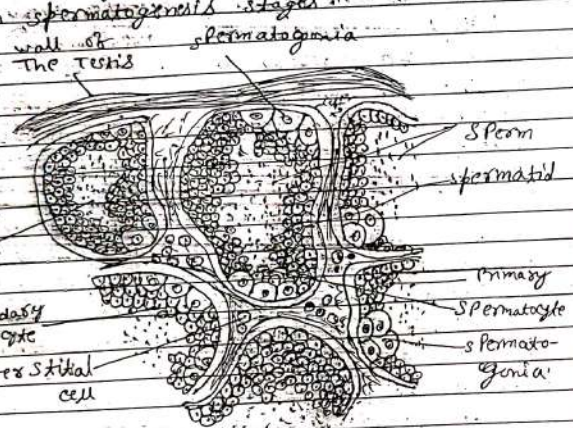 spermatogenesis stages
wall of
The Testis
spermatogonia
sperm
spermatid
Primary
spermatocyte
spermato-
gonia
stitial
cell